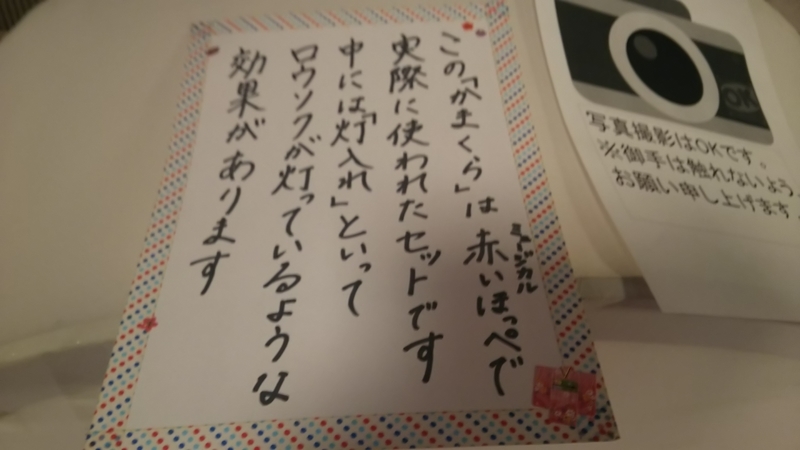 この「かまくら」は ミュージカル 赤いほっぺで
実際に使われたセットです
中には「灯入れ」といって
ロウソクが灯っているような
効果があります
OK
写真撮影はOKです。
※御手は触れないよう、
お願い申し上げます。